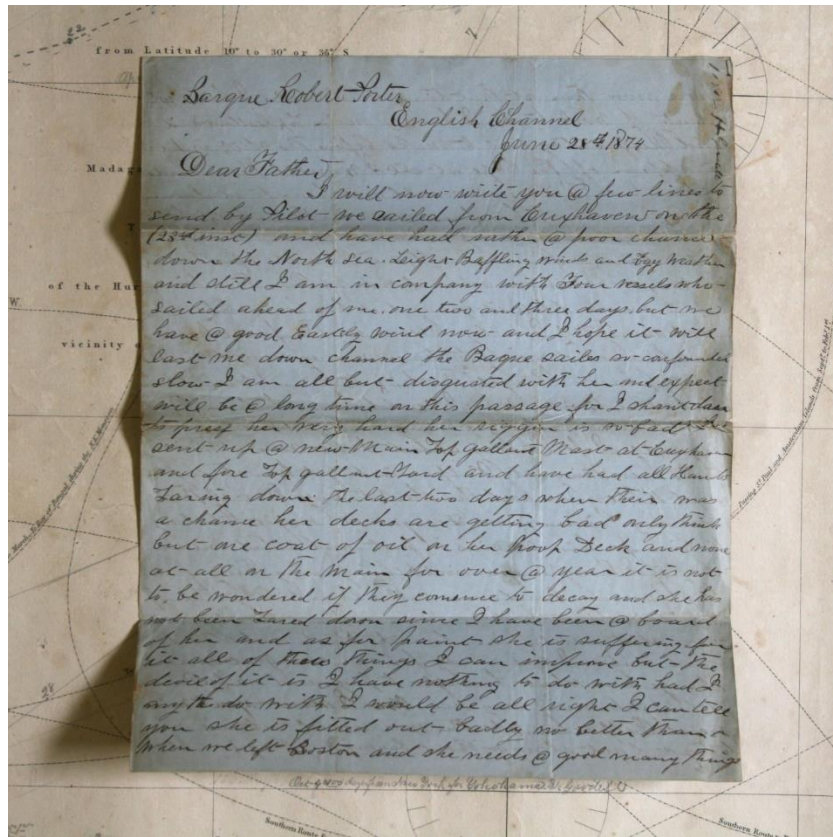 from Latitude 10° to 30° or 36° S.
Barque Robert Porter
English Channel
June 28th 1874
Dear Father
I will now write you @ few lines to
send by Pilot we sailed from Cuxhaven on the
inst) and have had rather @ poor chance
down the North sea. Leight Baffling winds and fogy Weather
and still I am in company with Four vessels who
sailed ahead of me. one two and three days. but we
have @ good Eastly wind now and I hope it will
last me down channel the Baque sailes so confounded
slow I am all but disgusted with her and expect
will be @ long time on this passage for I shant dare
to press her very hard her riggin is so bad I
sent up @ new Main Top gallant Mast at
and fore Top gallant Yard and have had all Hands
Taring down the last two days when their was
a chance her decks are getting bad only think
but one coat of oil on her Poop Deck and none
at all on the Main for over @ year it is not
to be wondered if they comence to decay and she has
not been Tared down since I have been @ board
of her and as for paint she is suffering for
it all of these things I can improve but the
devil of it is I have nothing to do with had I
any to do with I would be all right I can tell
you she is fitted out badly no bitter than
when we left Boston and she needs @ good many things
Madaga
of the Hur
vicinity
W.
28
Southern Route
Southern Route to